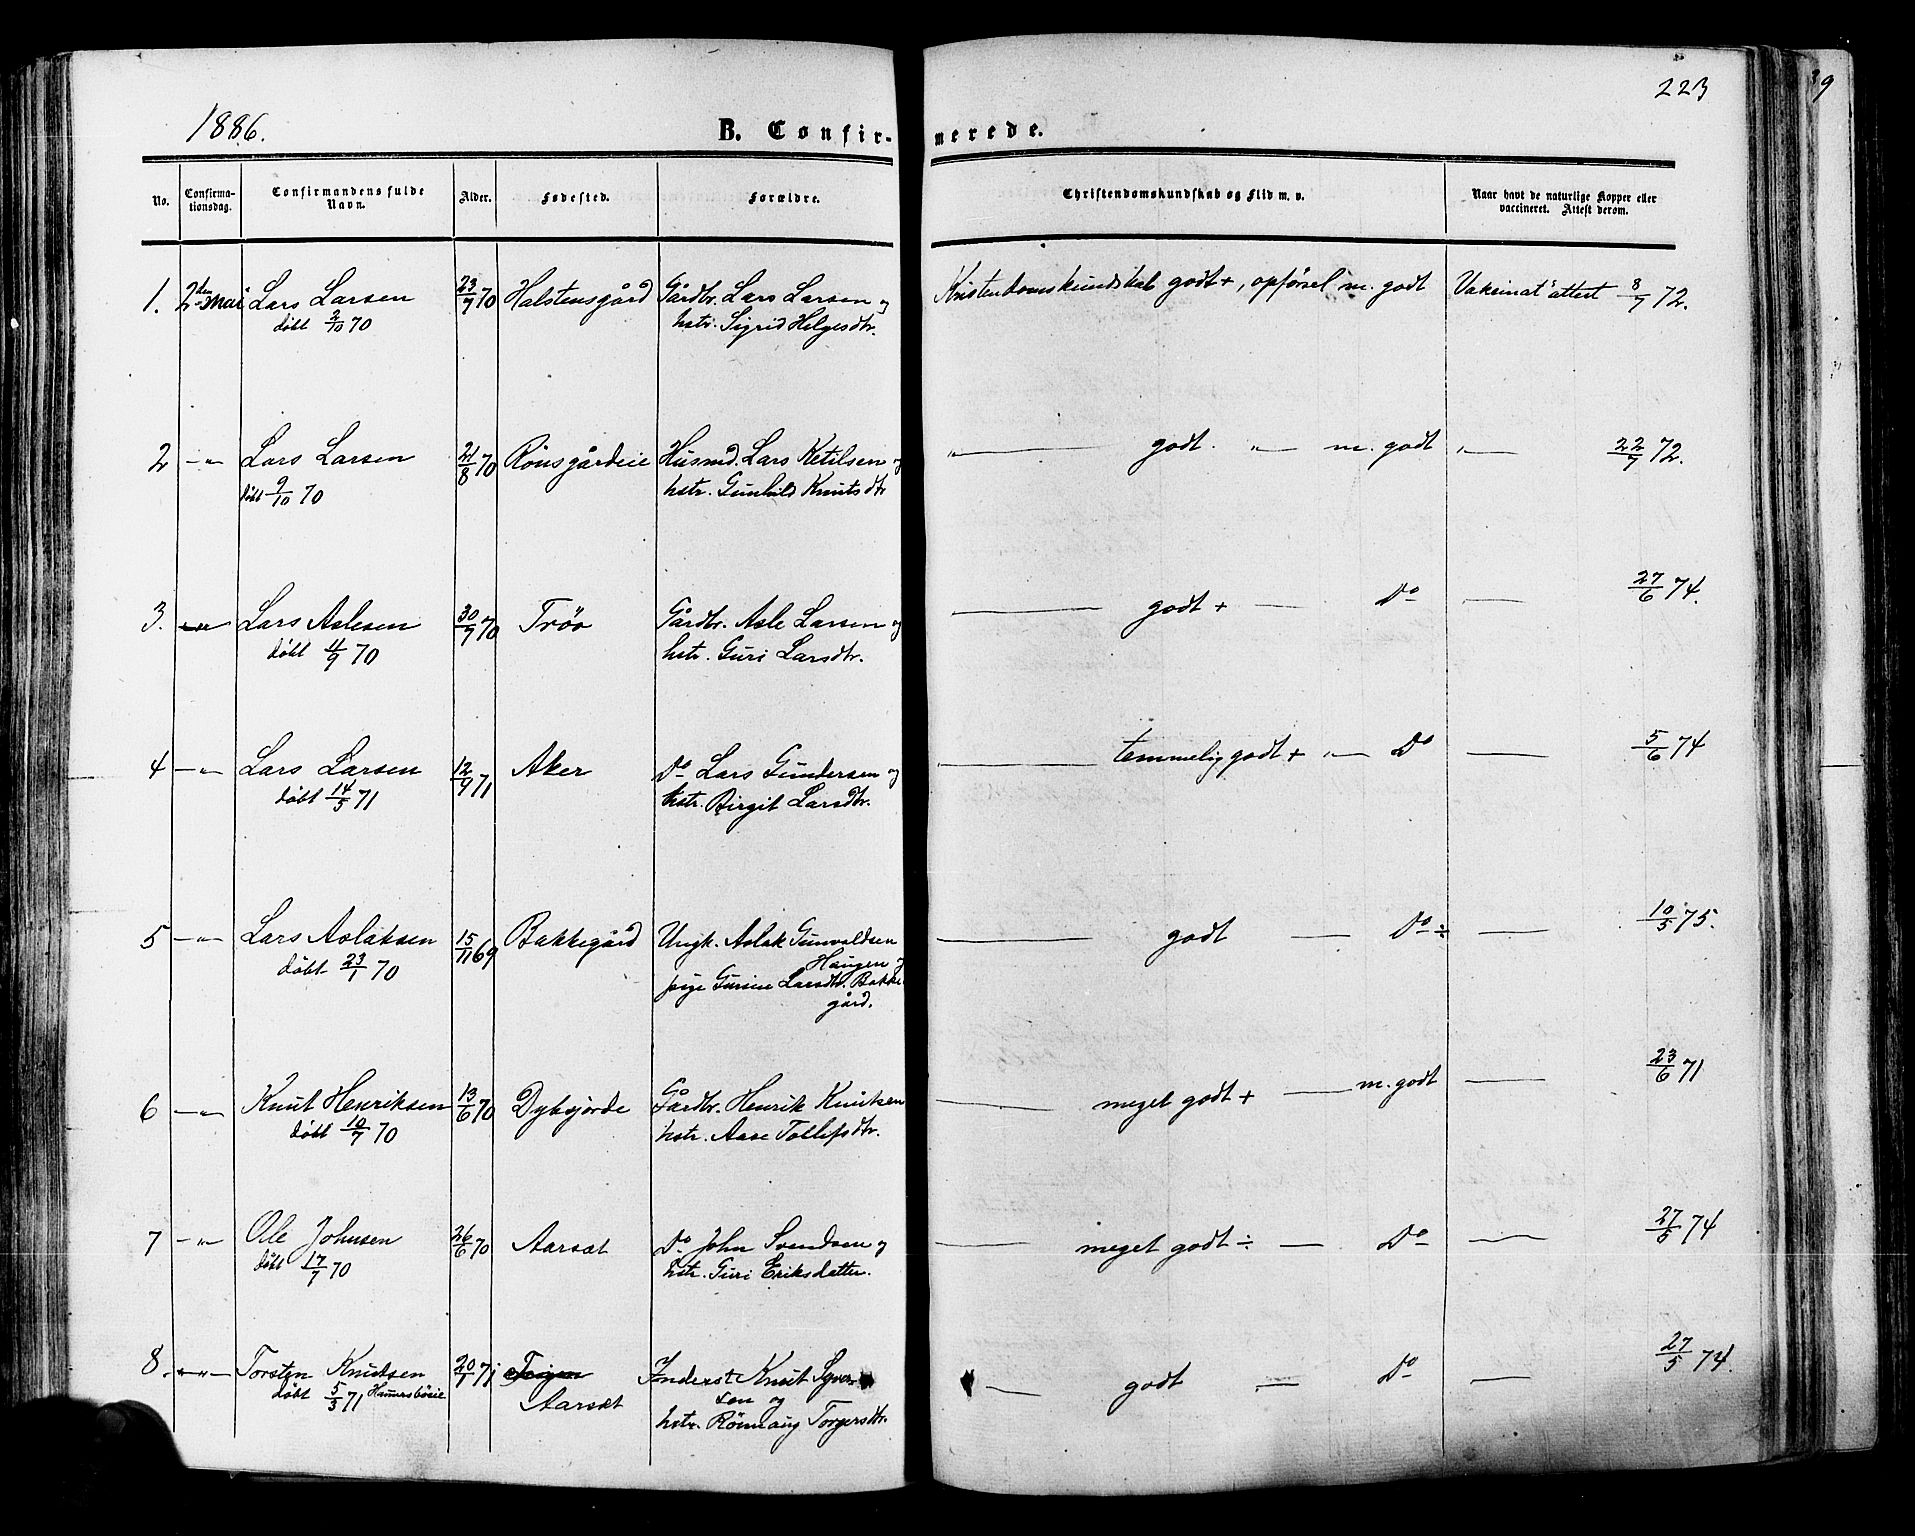 223
39
1886.
B. Confir- merede.
No. Confirma-tionsdag. Confirmandens fulde Navn. Alder. Fødested. Forældre. Christendomskundskab og Flid m. v. Naar havt de naturlige Kopper eller vaccineret. Attest derom.
1. 2den Mai Lars Larsen 23/7 70 Halstensgård Gårdbr. Lars Larsen og Kristendomskundskab godt +, opførsel m. godt Vaksinat. attest 8/7 72.
døbt 2/10 70 hstr. Sigrid Helgesdtr.
2 -„- Lars Larsen 21/8 70 Rønsgårdeie Husmd. Lars Ketilsen og „— godt „— m. godt „— 22/7 72.
døbt 9/10 70 hstr. Gunhild Knutsdtr
3. -„- Lars Aslesen 30/7 70 Trøo Gårdbr. Asle Larsen og — godt + — Do — 27/6 74.
døbt 11/9 70 hstr. Guri Larsdtr.
4 -„- Lars Larsen 12/4 71 Aker Do Lars Gundersen og — temmelig godt + „— Do — 5/6 74
døbt 14/5 71 hstr. Birgit Larsdtr.
5 -„- Lars Aslaksen 15/11 69 Bakkegård Ungk. Aslak Gunvaldsen — godt — Do ÷ — 10/5 75.
døbt 23/1 70 Haugen og
pige Gurine Larsdtr. Bakke-
gård.
6 -„- Knut Henriksen 13/6 70 Dybsjorde Gårdbr. Henrik Knutsen — meget godt + — m. godt — 23/6 71
døbt 10/7 70 hstr. Aase Tollefsdtr.
7 -„- Ole Johnsen 26/6 70 Aarsæt Do John Svendsen og — meget godt ÷ — Do — 27/5 74
døbt 17/7 70 hstr. Guri Eriksdatter.
8. -„- Torsten Knudsen 20/1 71 Teigen Inderst Knut Syver- — godt — Do — 27/5 74.
døbt 5/3 71 Hamersbøeie Aarsæt sen og
hstr. Rønnaug Torgersdtr.